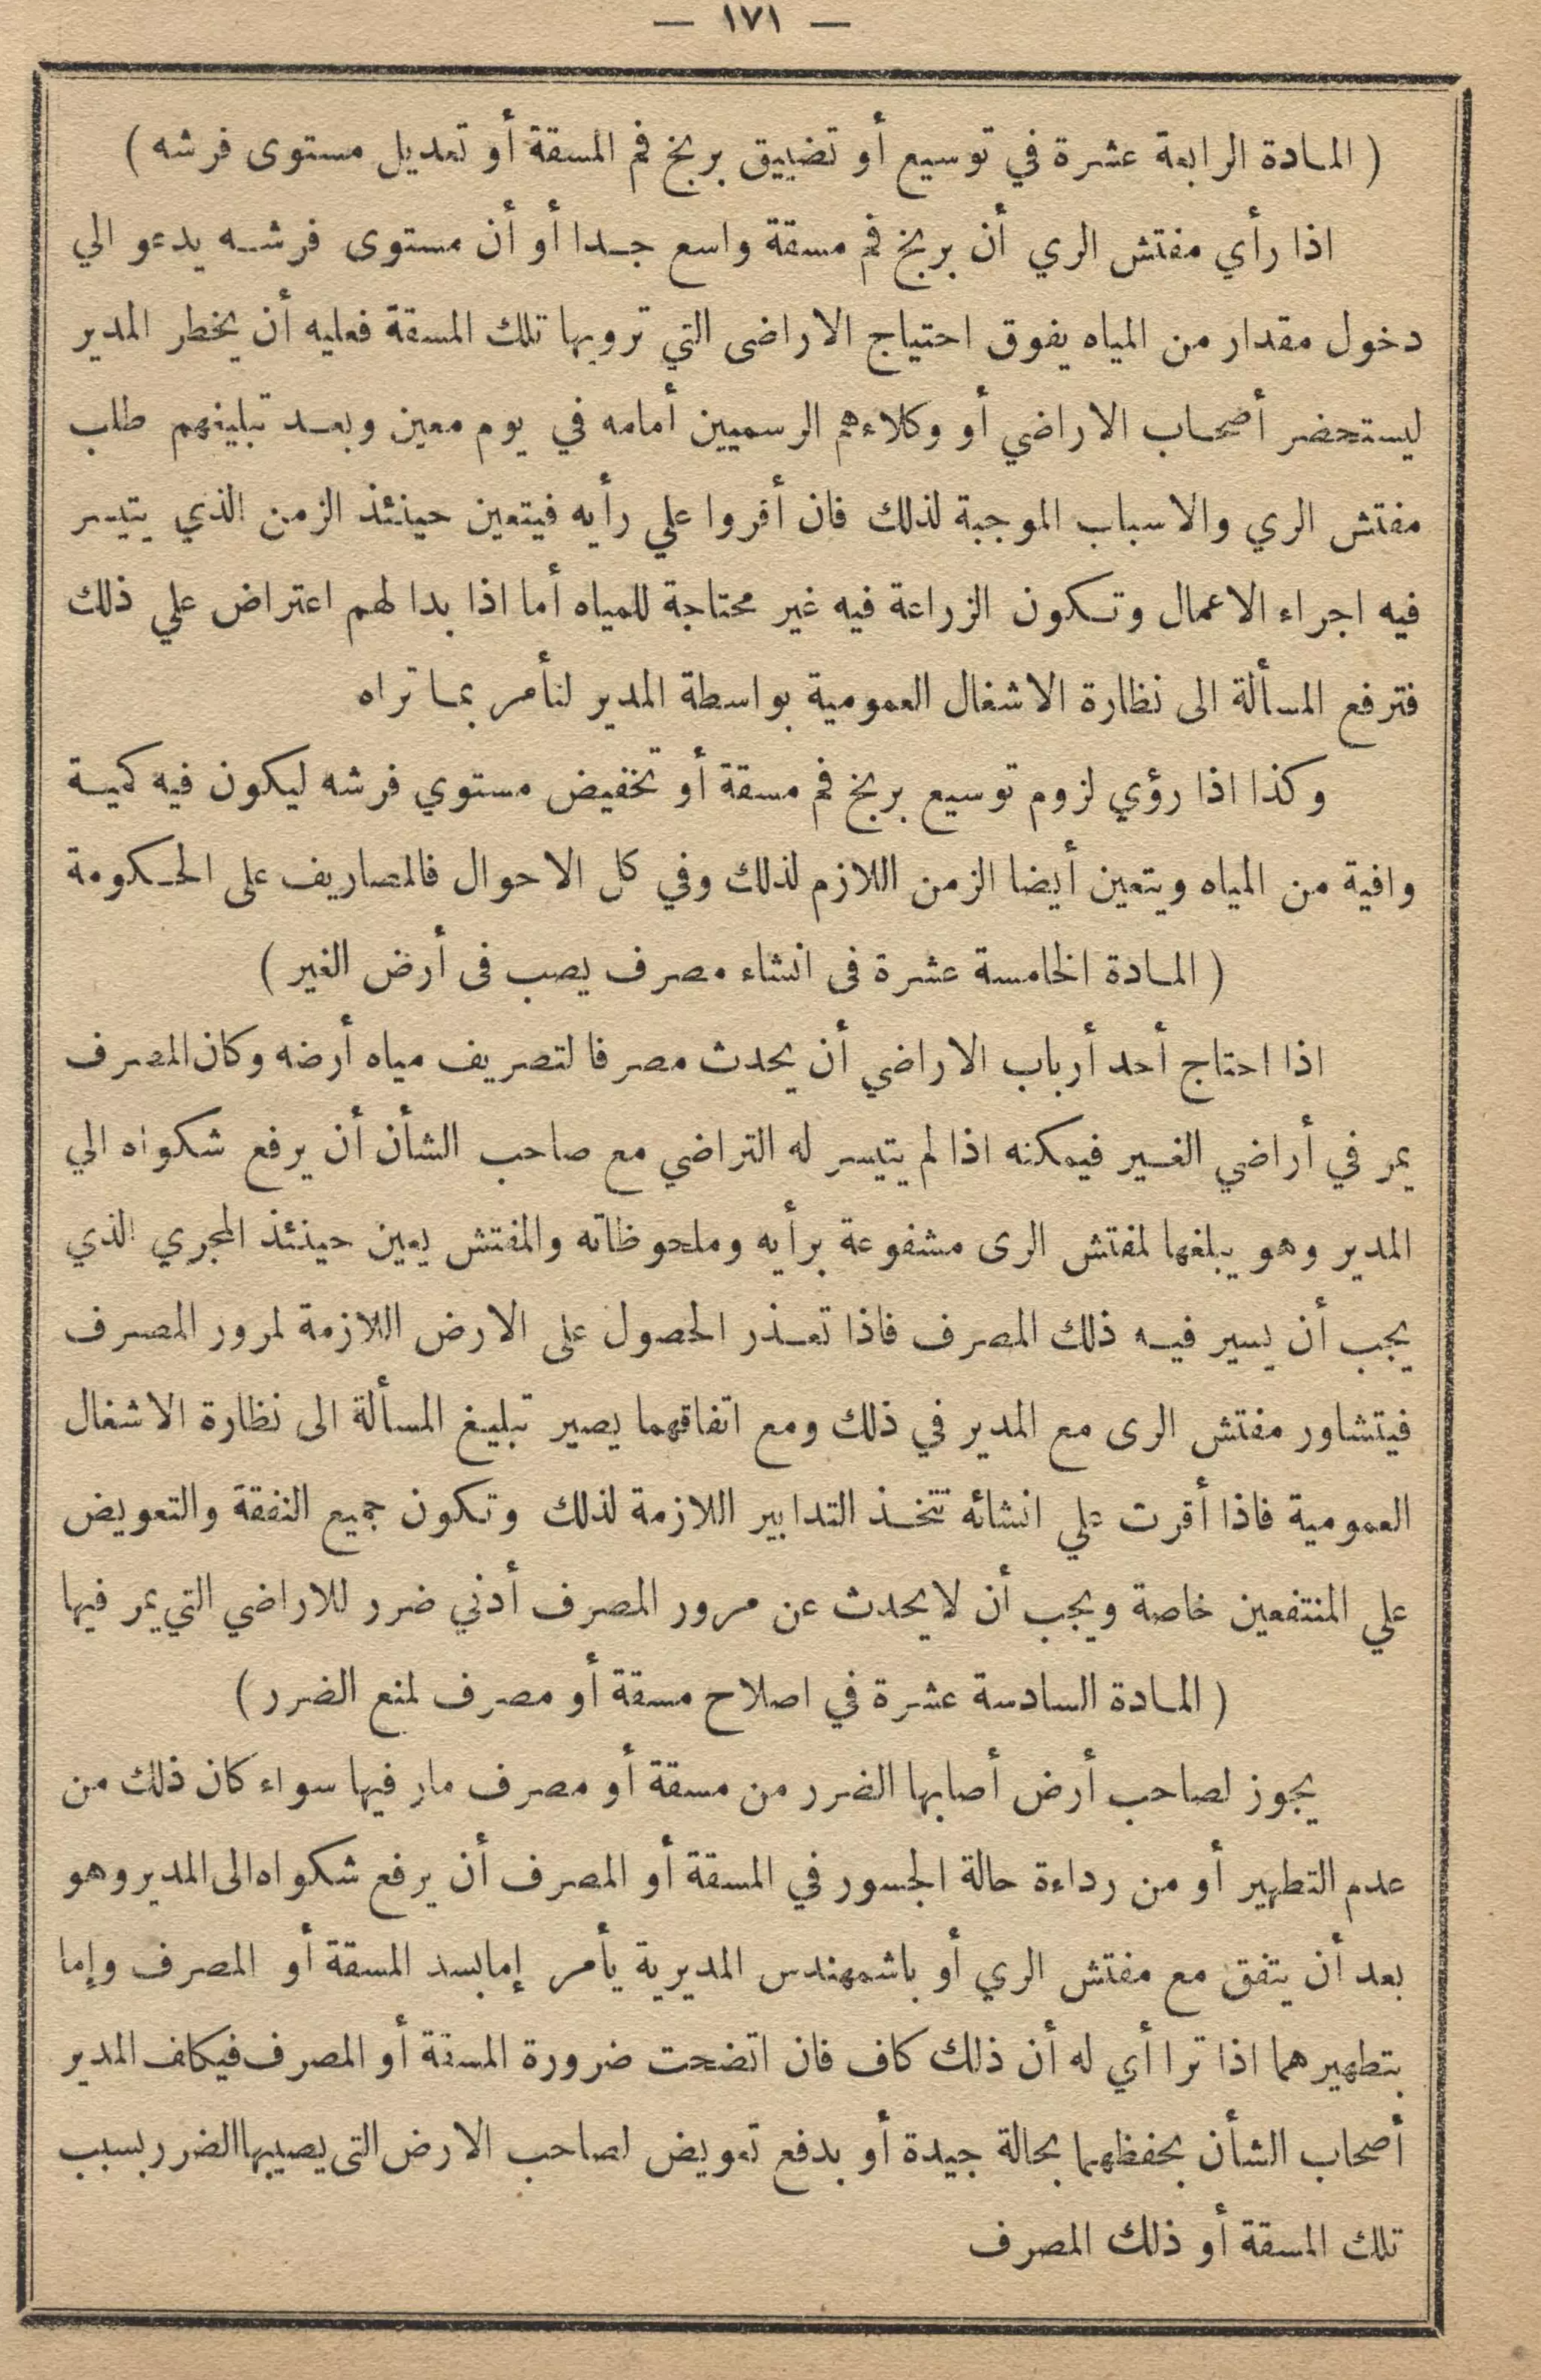 — ١٧١ —
( المادة الرابعة عشرة في توسيع أو تضييق بربخ فم المسقة أو تعديل مستوى فرشه )
اذا رأي مفتش الري أن بربخ فم مسقة واسع جدا أو أن مستوى فرشه يدعو الي
دخول مقدار من المياه يفوق احتياج الاراضى التي ترويها تلك المسقة فعليه أن يخطر المدير
ليستحضر أصحاب الاراضي أو وكلاءهم الرسميين أمامه في يوم معين وبعد تبليغهم طلب
مفتش الري والاسباب الموجبة لذلك فان أقروا علي رأيه فيتعين حينئذ الزمن الذي يتيسر
فيه اجراء الاعمال وتكون الزراعة فيه غير محتاجة للمياه أما اذا بدا لهم اعتراض علي ذلك
فترفع المسألة الى نظارة الاشغال العمومية بواسطة المدير لتأمر بما تراه
وكذا اذا رؤي لزوم توسيع بربخ فم مسقة أو تخفيض مستوي فرشه ليكون فيه كمية
وافية من المياه ويتعين أيضا الزمن اللازم لذلك وفي كل الاحوال فالمصاريف على الحكومة
( المادة الخامسة عشرة فى انشاء مصرف يصب فى أرض الغير )
اذا احتاج أحد أرباب الاراضي أن يحدث مصرفا لتصريف مياه أرضه وكان المصرف
يمر في أراضي الغير فيمكنه اذا لم يتيسر له التراضي مع صاحب الشأن أن يرفع شكواه الي
المدير وهو يبلغها لمفتش الرى مشفوعة برأيه وملحوظاته والمفتش يعين حينئذ المجري الذي
يجب أن يسير فيه ذلك المصرف فاذا تعذر الحصول على الارض اللازمة لمرور المصرف
فيتشاور مفتش الرى مع المدير في ذلك ومع اتفاقهما يصير تبليغ المسألة الى نظارة الاشغال
العمومية فاذا أقرت علي انشائه تتخذ التدابير اللازمة لذلك وتكون جميع النفقة والتعويض
علي المنتفعين خاصة ويجب أن لا يحدث عن مرور المصرف أدني ضرر للاراضي التي يمر فيها
( المادة السادسة عشرة في اصلاح مسقة أو مصرف لمنع الضرر )
يجوز لصاحب أرض أصابها الضرر من مسقة أو مصرف مار فيها سواء كان ذلك من
عدم التطهير أو من رداءة حالة الجسور في المسقة أو المصرف أن يرفع شكواه الى المدير وهو
بعد أن يتفق مع مفتش الري أو باشمهندس المديرية يأمر إما بسد المسقة أو المصرف وإما
بتطهيرهما اذا تراأي له أن ذلك كاف فان اتضحت ضرورة المسقة أو المصرف فيكلف المدير
أصحاب الشأن بحفظهما بحالة جيدة أو بدفع تعويض لصاحب الارض التى يصيبها الضرر بسبب
تلك المسقة أو ذلك المصرف